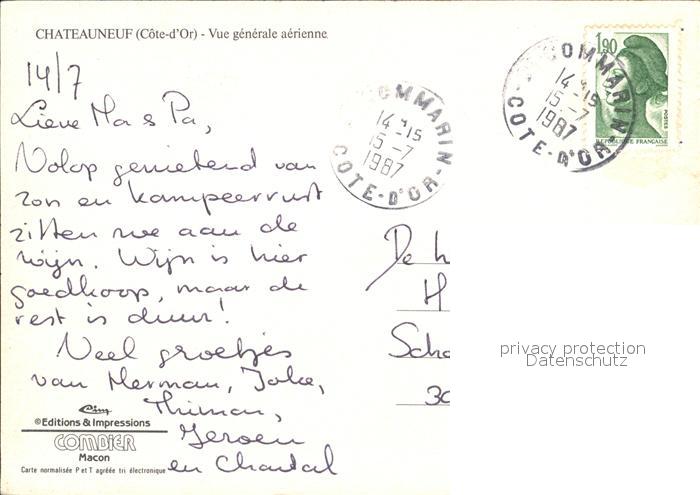 CHATEAUNEUF (Côte-d'Or) - Vue générale aérienne
14/7
Lieve Ma & Pa,
Volop genietend van
zon en kampeerrust
zitten we aan de
wijn. Wijn is hier
goedkoop, maar de
rest is duur!
Veel groetjes
van Herman, Joke,
Thimon,
Jeroen
en Chantal
COMMARIN
14-15
15-7
1987
COTE-D'OR
COMMARIN
14-15
15-7
1987
COTE-D'OR
1,90
POSTES
REPUBLIQUE FRANÇAISE
De h
H
Scho
30
privacy protection
Datenschutz
©Editions & Impressions
COMBIER
Macon
Carte normalisée P et T agréée tri électronique